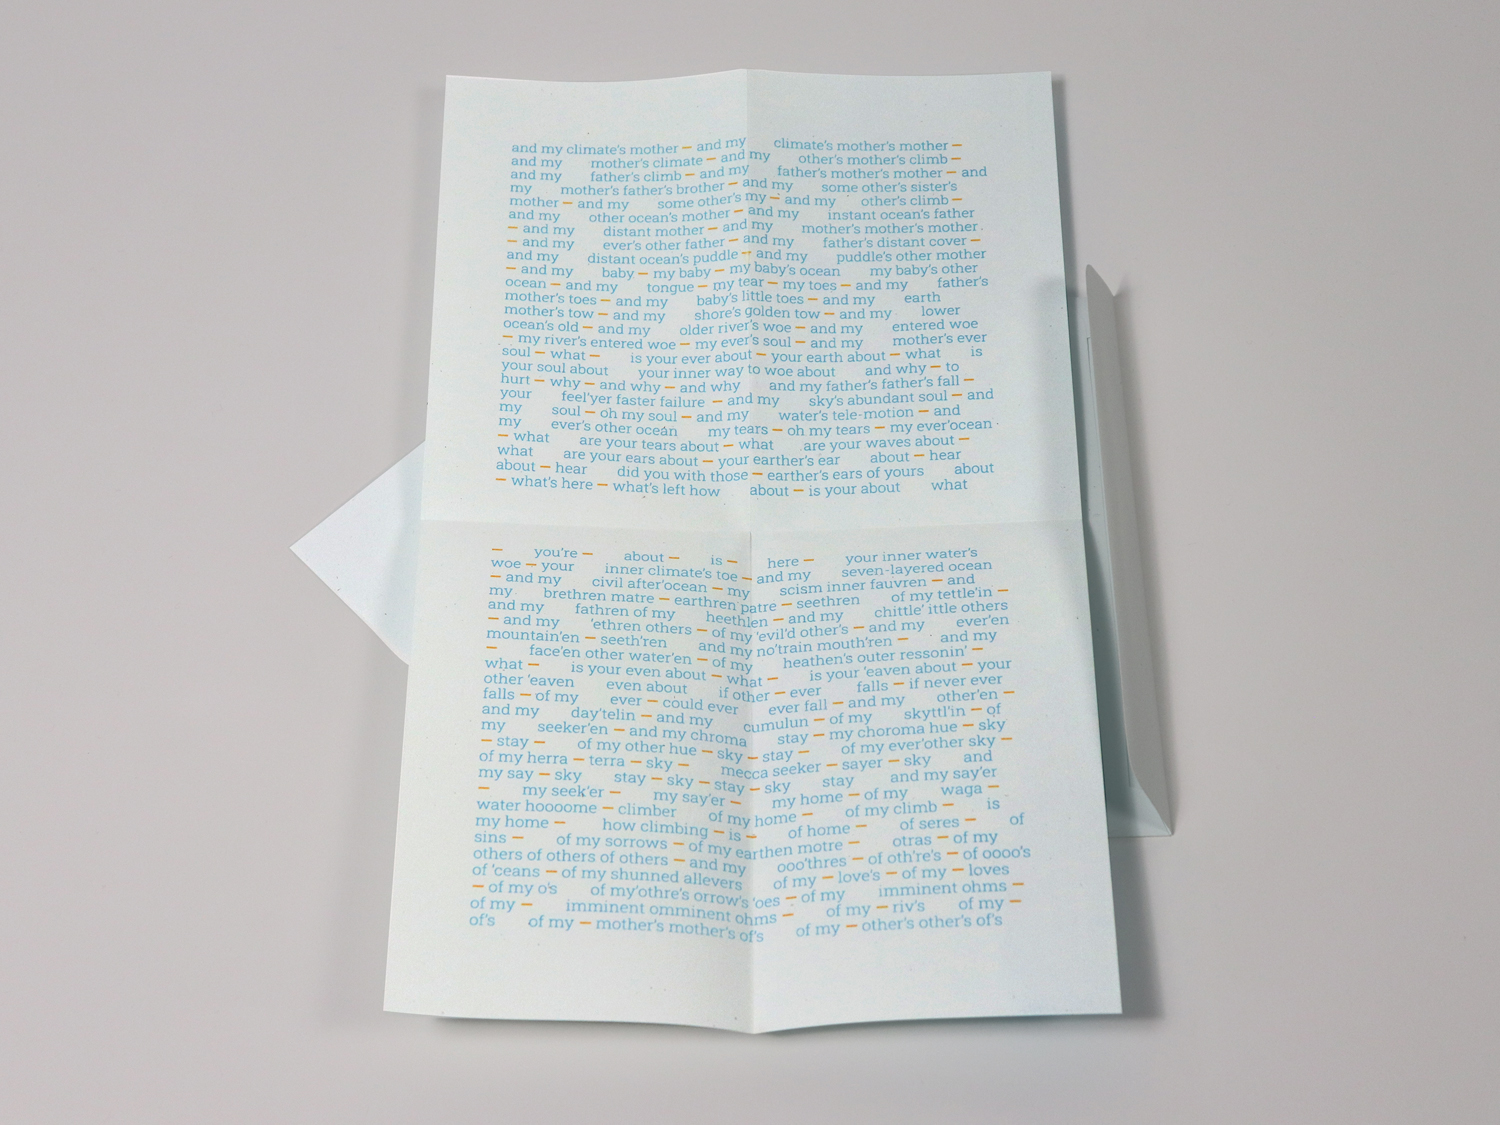 and my climate's mother – and my climate's mother's mother –
and my mother's climate – and my other's mother's climb –
and my father's climb – and my father's mother's mother – and
my mother's father's brother – and my some other's sister's
mother – and my some other's my – and my other's climb –
and my other ocean's mother – and my instant ocean's father
– and my distant mother – and my mother's mother's mother
– and my ever's other father – and my father's distant cover –
and my distant ocean's puddle – and my puddle's other mother
– and my baby – my baby – my baby's ocean my baby's other
ocean – and my tongue – my tear – my toes – and my father's
mother's toes – and my baby's little toes – and my earth
mother's tow – and my shore's golden tow – and my lower
ocean's old – and my older river's woe – and my entered woe
– my river's entered woe – my ever's soul – and my mother's ever
soul – what – is your ever about – your earth about – what is
your soul about your inner way to woe about and why – to
hurt – why – and why – and why and my father's father's fall –
your feel'yer faster failure – and my sky's abundant soul – and
my soul – oh my soul – and my water's tele-motion – and
my ever's other ocean my tears – oh my tears – my ever'ocean
– what are your tears about – what are your waves about –
what are your ears about – your earther's ear about – hear
about – hear did you with those – earther's ears of yours about
– what's here – what's left how about – is your about what
– you're – about – is – here – your inner water's
woe – your inner climate's toe – and my seven-layered ocean
– and my civil after'ocean – my scism inner fauvren – and
my brethren matre – earthren patre – seethren of my tettle'in –
and my fathren of my heethlen – and my chittle' ittle others
– and my 'ethren others – of my 'evil'd other's – and my ever'en
mountain'en – seeth'ren and my no'train mouth'ren – and my
– face'en other water'en – of my heathen's outer ressonin' –
what – is your even about – what – is your 'eaven about – your
other 'eaven even about if other – ever falls – if never ever
falls – of my ever – could ever ever fall – and my other'en –
and my day'telin – and my cumulun – of my skyttl'in – of
my seeker'en – and my chroma stay – my choroma hue – sky
– stay – of my other hue – sky – stay – of my ever'other sky –
of my herra – terra – sky – mecca seeker – sayer – sky and
my say – sky stay – sky – stay – sky stay and my say'er
– my seek'er – my say'er – my home – of my waga –
water hoooome – climber of my home – of my climb – is
my home – how climbing – is – of home – of seres – of
sins – of my sorrows – of my earthen motre – otras – of my
others of others of others – and my ooo'thres – of oth're's – of oooo's
of 'ceans – of my shunned allevers of my – love's – of my – loves
– of my o's of my'othre's orrow's 'oes – of my imminent ohms –
of my – imminent omminent ohms – of my – riv's of my –
of's of my – mother's mother's of's of my – other's other's of's